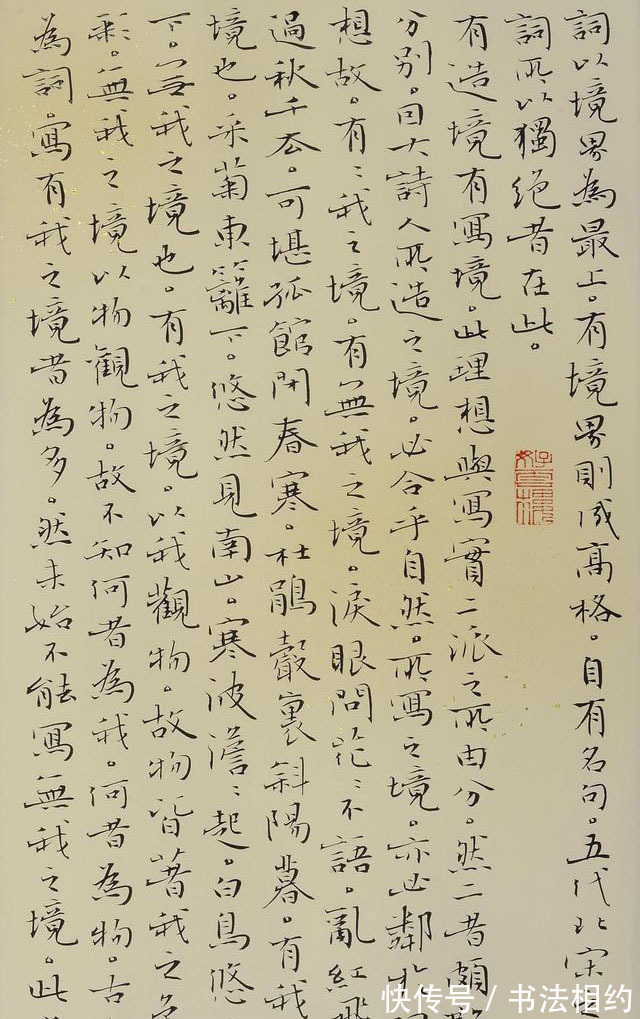 詞以境界為最上。有境界則成高格。自有名句。五代北宋之
詞所以獨絕者在此。
有造境有寫境。此理想與寫實二派之所由分。然二者頗難
分别。因大詩人所造之境。必合乎自然。所寫之境。亦必鄰於理
想故。有〻我之境。有無我之境。淚眼問花〻不語。亂紅飛
過秋千去。可堪孤館閉春寒。杜鵑聲裏斜陽暮。有我
境也。采菊東籬下。悠然見南山。寒波澹〻起。白鳥悠
下。無我之境也。有我之境。以我觀物。故物皆著我之色
彩。無我之境以物觀物。故不知何者為我。何者為物。古
為詞。寫有我之境者為多。然未始不能寫無我之境。此
快传号/书法相约